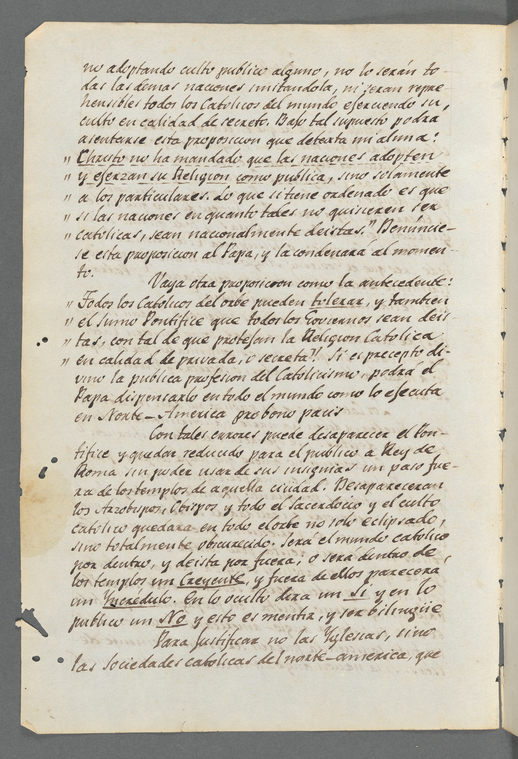 no adoptando culto publico alguno, no lo serán to-
das las demas naciones imitandola, ni seran repre-
hensibles todos los Catolicos del mundo ejerciendo su
culto en calidad de secreto. Bajo tal supuesto podra
asentarse esta proposicion que detesta mi alma:
" Christo no ha mandado que las naciones adopten
" y ejerzan su Religion como publica, sino solamente
" a los particulares. Lo que si tiene ordenado es que
" si las naciones en quanto tales no quisieren ser
" catolicas, sean nacionalmente deistas." Denuncie-
se esta proposicion al Papa, y la condenará al momen-
to.
Vaya otra proposicion como la antecedente:
" Todos los Catolicos del orbe pueden tolerar, y tambien
" el Sumo Pontifice que todos los Goviernos sean deis-
" tas, con tal de que protejan la Religion Catolica
" en calidad de privada, o secreta"! Si es precepto di-
vino la publica profesion del Catolicismo, podrá el
Papa dispensarlo en todo el mundo como lo ejecuta
en Norte-America pro bono pacis
Con tales errores puede desaparecer el Pon-
tifice y quedar reducido para el publico a Rey de
Roma sin poder usar de sus insignias un paso fue-
ra de los templos de aquella ciudad. Desapareceran
los Arzobispos, Obispos y todo el Sacerdocio y el culto
catolico quedara en todo el orbe no solo eclipsado,
sino totalmente obscurecido. Será el mundo catolico
por dentro, y deista por fuera; o será dentro de
los templos un Creyente, y fuera de ellos parecera
un Yncredulo. En lo oculto dira un Si y en lo
publico un No y esto es mentir, y ser bilingüe
Para justificar no las Yglesias, sino
las Sociedades catolicas del norte-america, que